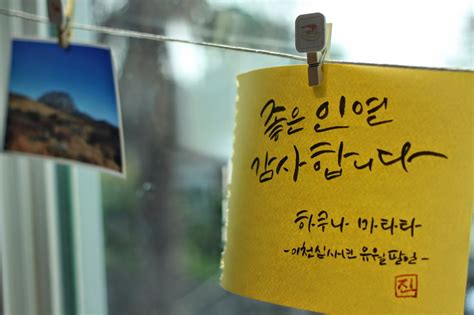 좋은 인연
감사합니다
하쿠나 마타타
-이천십사년 유월팔일-
직